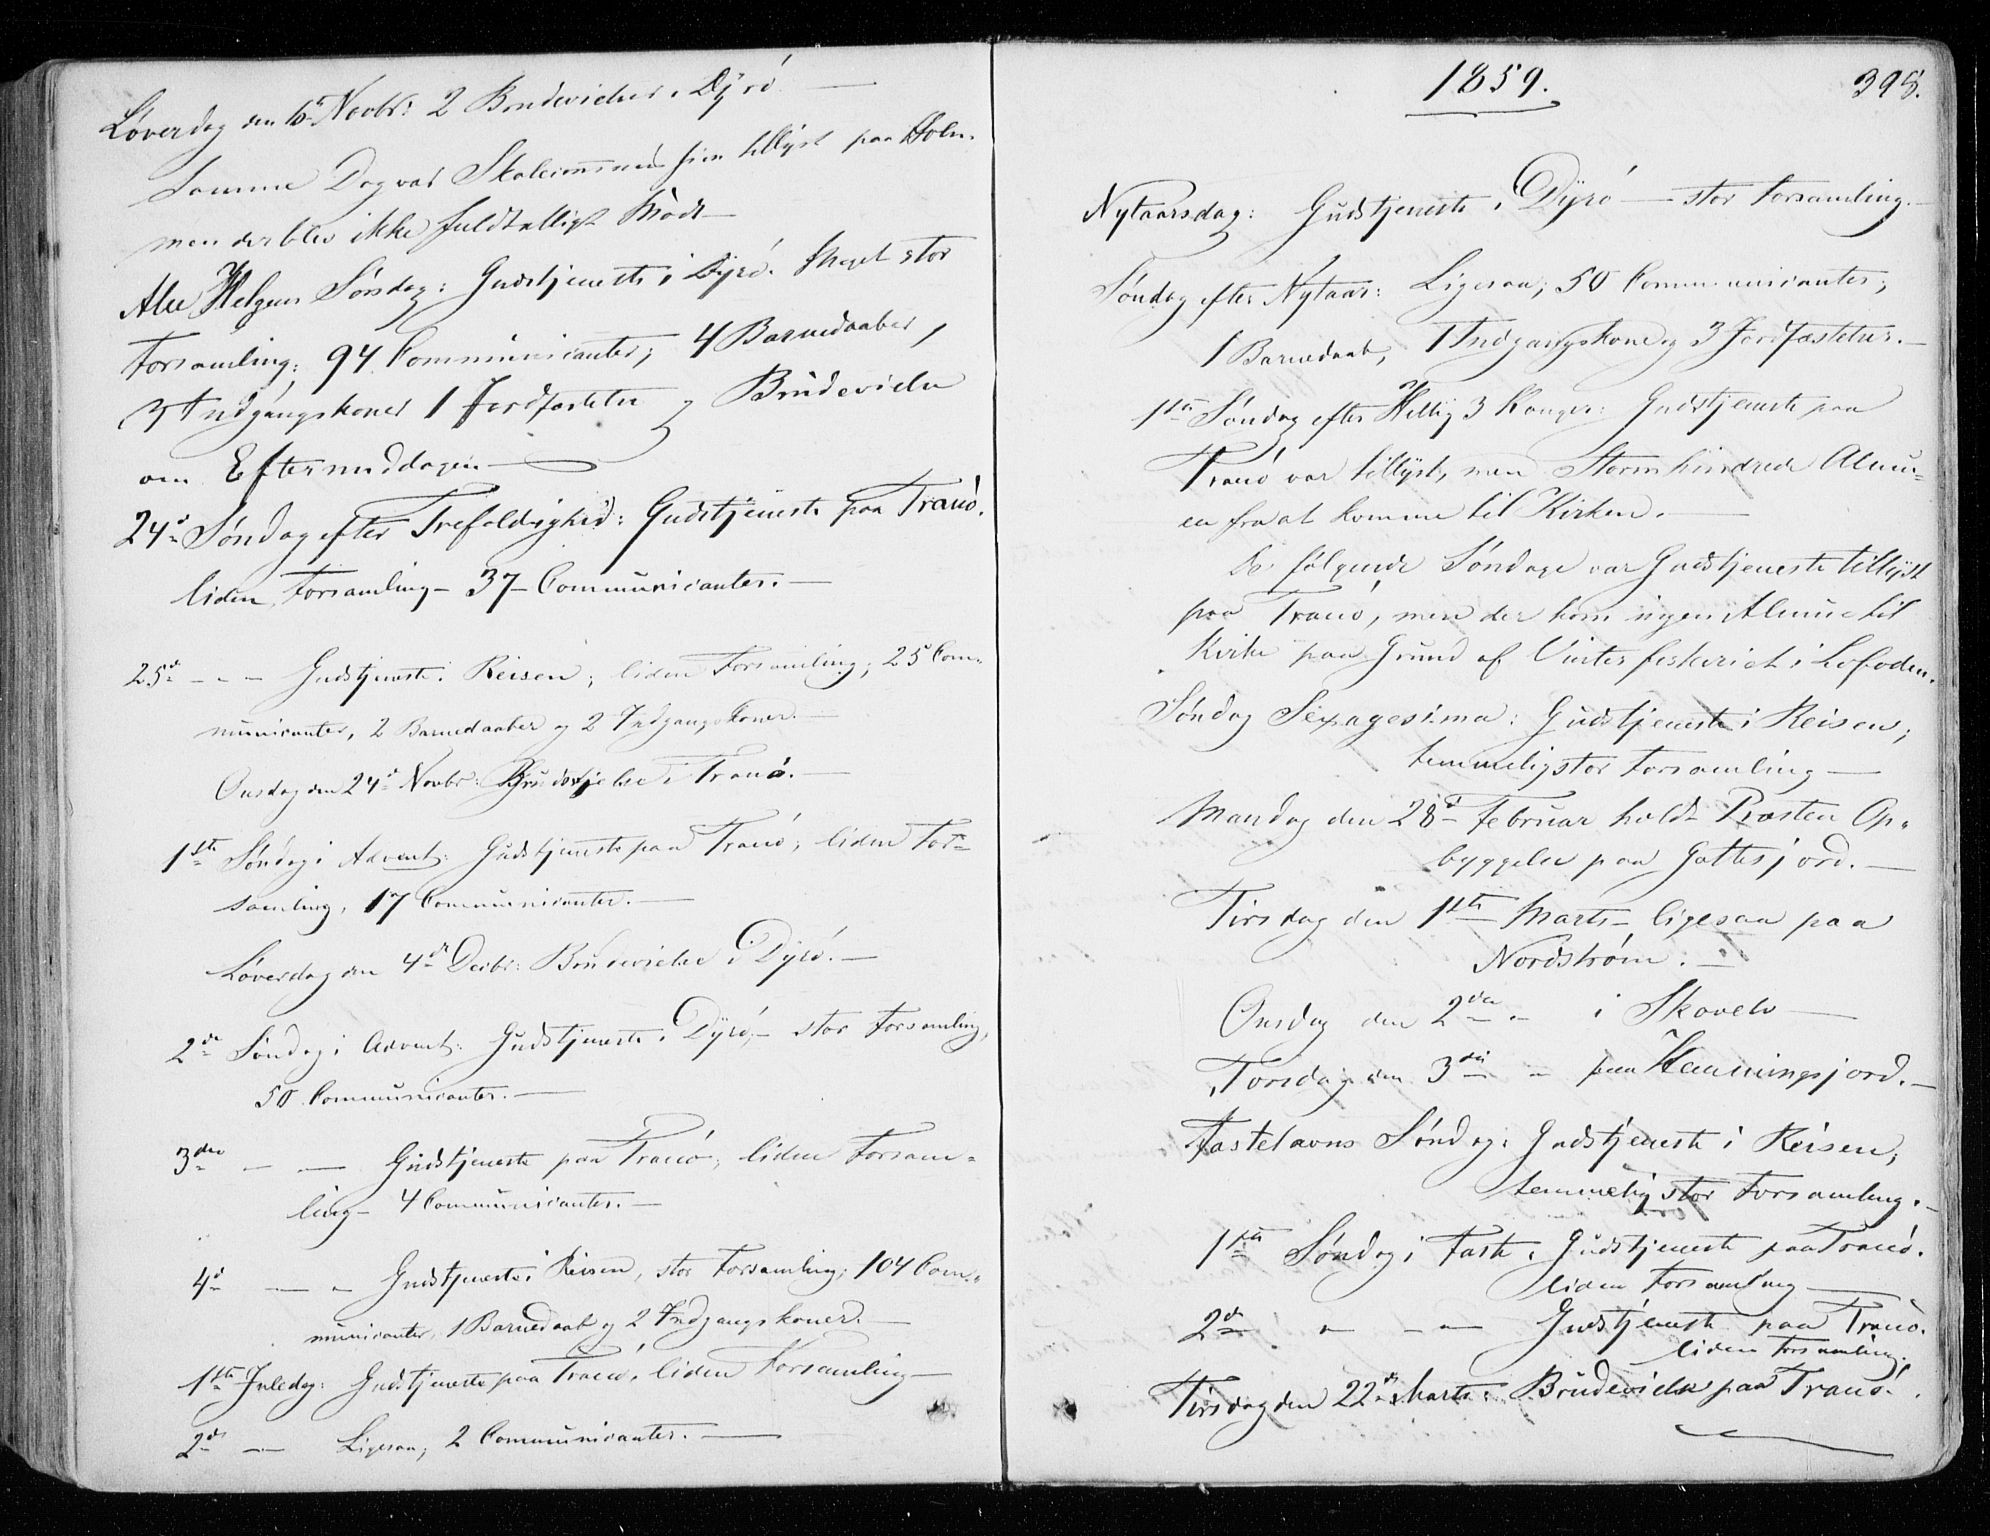 Løverdag den 6t Novbr: 2 Brudevielser i Dyrø —
Samme Dag var Skolecommissionen tillyst paa Holm.
men der blev ikke fuldtalligt Møde —
Alle Helgens Søndag: Gudstjeneste i Dyrø. Meget stor
Forsamling; 94 Communicanter; 4 Barnedaaber,
3 Indgangskoner 1 Jordfæstelse og Brudevielse
om Eftermiddagen —
24d Søndag efter Trefoldighed: Gudstjeneste paa Tranø.
liden Forsamling – 37 Communicanter. —
25d - - - Gudstjeneste i Reisen; liden Forsamling; 25 Com-
municanter, 2 Barnedaaber og 2 Indgangskoner. —
Onsdag den 24d Novbr: Brudevielse i Tranø. —
1ste Søndag i Advent: Gudstjeneste paa Tranø; liden For-
samling, 17 Communicanter. —
Løverdag den 4d Decbr: Brudevielse i Dyrø. —
2den Søndag i Advent: Gudstjeneste i Dyrø, – stor Forsamling,
50 Communicanter. —
3den — — Gudstjeneste paa Tranø; liden Forsam-
ling – 4 Communicanter. —
4d — - Gudstjeneste i Reisen, stor Forsamling; 104 Com-
municanter, 1 Barnedaab og 2 Indgangskoner. —
1ste Juledag: Gudstjeneste paa Tranø, liden Forsamling —
2d — Ligesaa; 2 Communicanter. —
1859. 395.
Nytaarsdag: Gudstjeneste i Dyrø — stor Forsamling. —
Søndag efter Nytaar: Ligesaa; 50 Communicanter;
1 Barnedaab, 1 Indgangskone og 3 Jordfæstelser. —
1ste Søndag efter Hellig 3 Konger: Gudstjeneste paa
Tranø var tillyst, men Storm hindrede Almu-
en fra at komme til Kirken. —
De følgende Søndage var Gudstjeneste tillyst
paa Tranø, men der kom ingen Almue til
Kirke paa Grund af Vinterfiskeriet i Lofoden.
Søndag Sexagesima: Gudstjeneste i Reisen;
temmelig stor Forsamling —
Mandag den 28d Februar holdt Præsten Op-
byggelse paa Gottesjord. —
Tirsdag den 1ste Marts – ligesaa paa
Nordstrøm. —
Onsdag den 2den - i Skovelv —
Torsdag den 3die - paa Hemmingsjord. —
Fastelavns Søndag: Gudstjeneste i Reisen;
temmelig stor Forsamling. —
1ste Søndag i Faste. Gudstjeneste paa Tranø.
liden Forsamling —
2d - - - Gudstjeneste paa Tranø.
liden Forsamling.
Tirsdag den 22d Marts: Brudevielse paa Tranø.